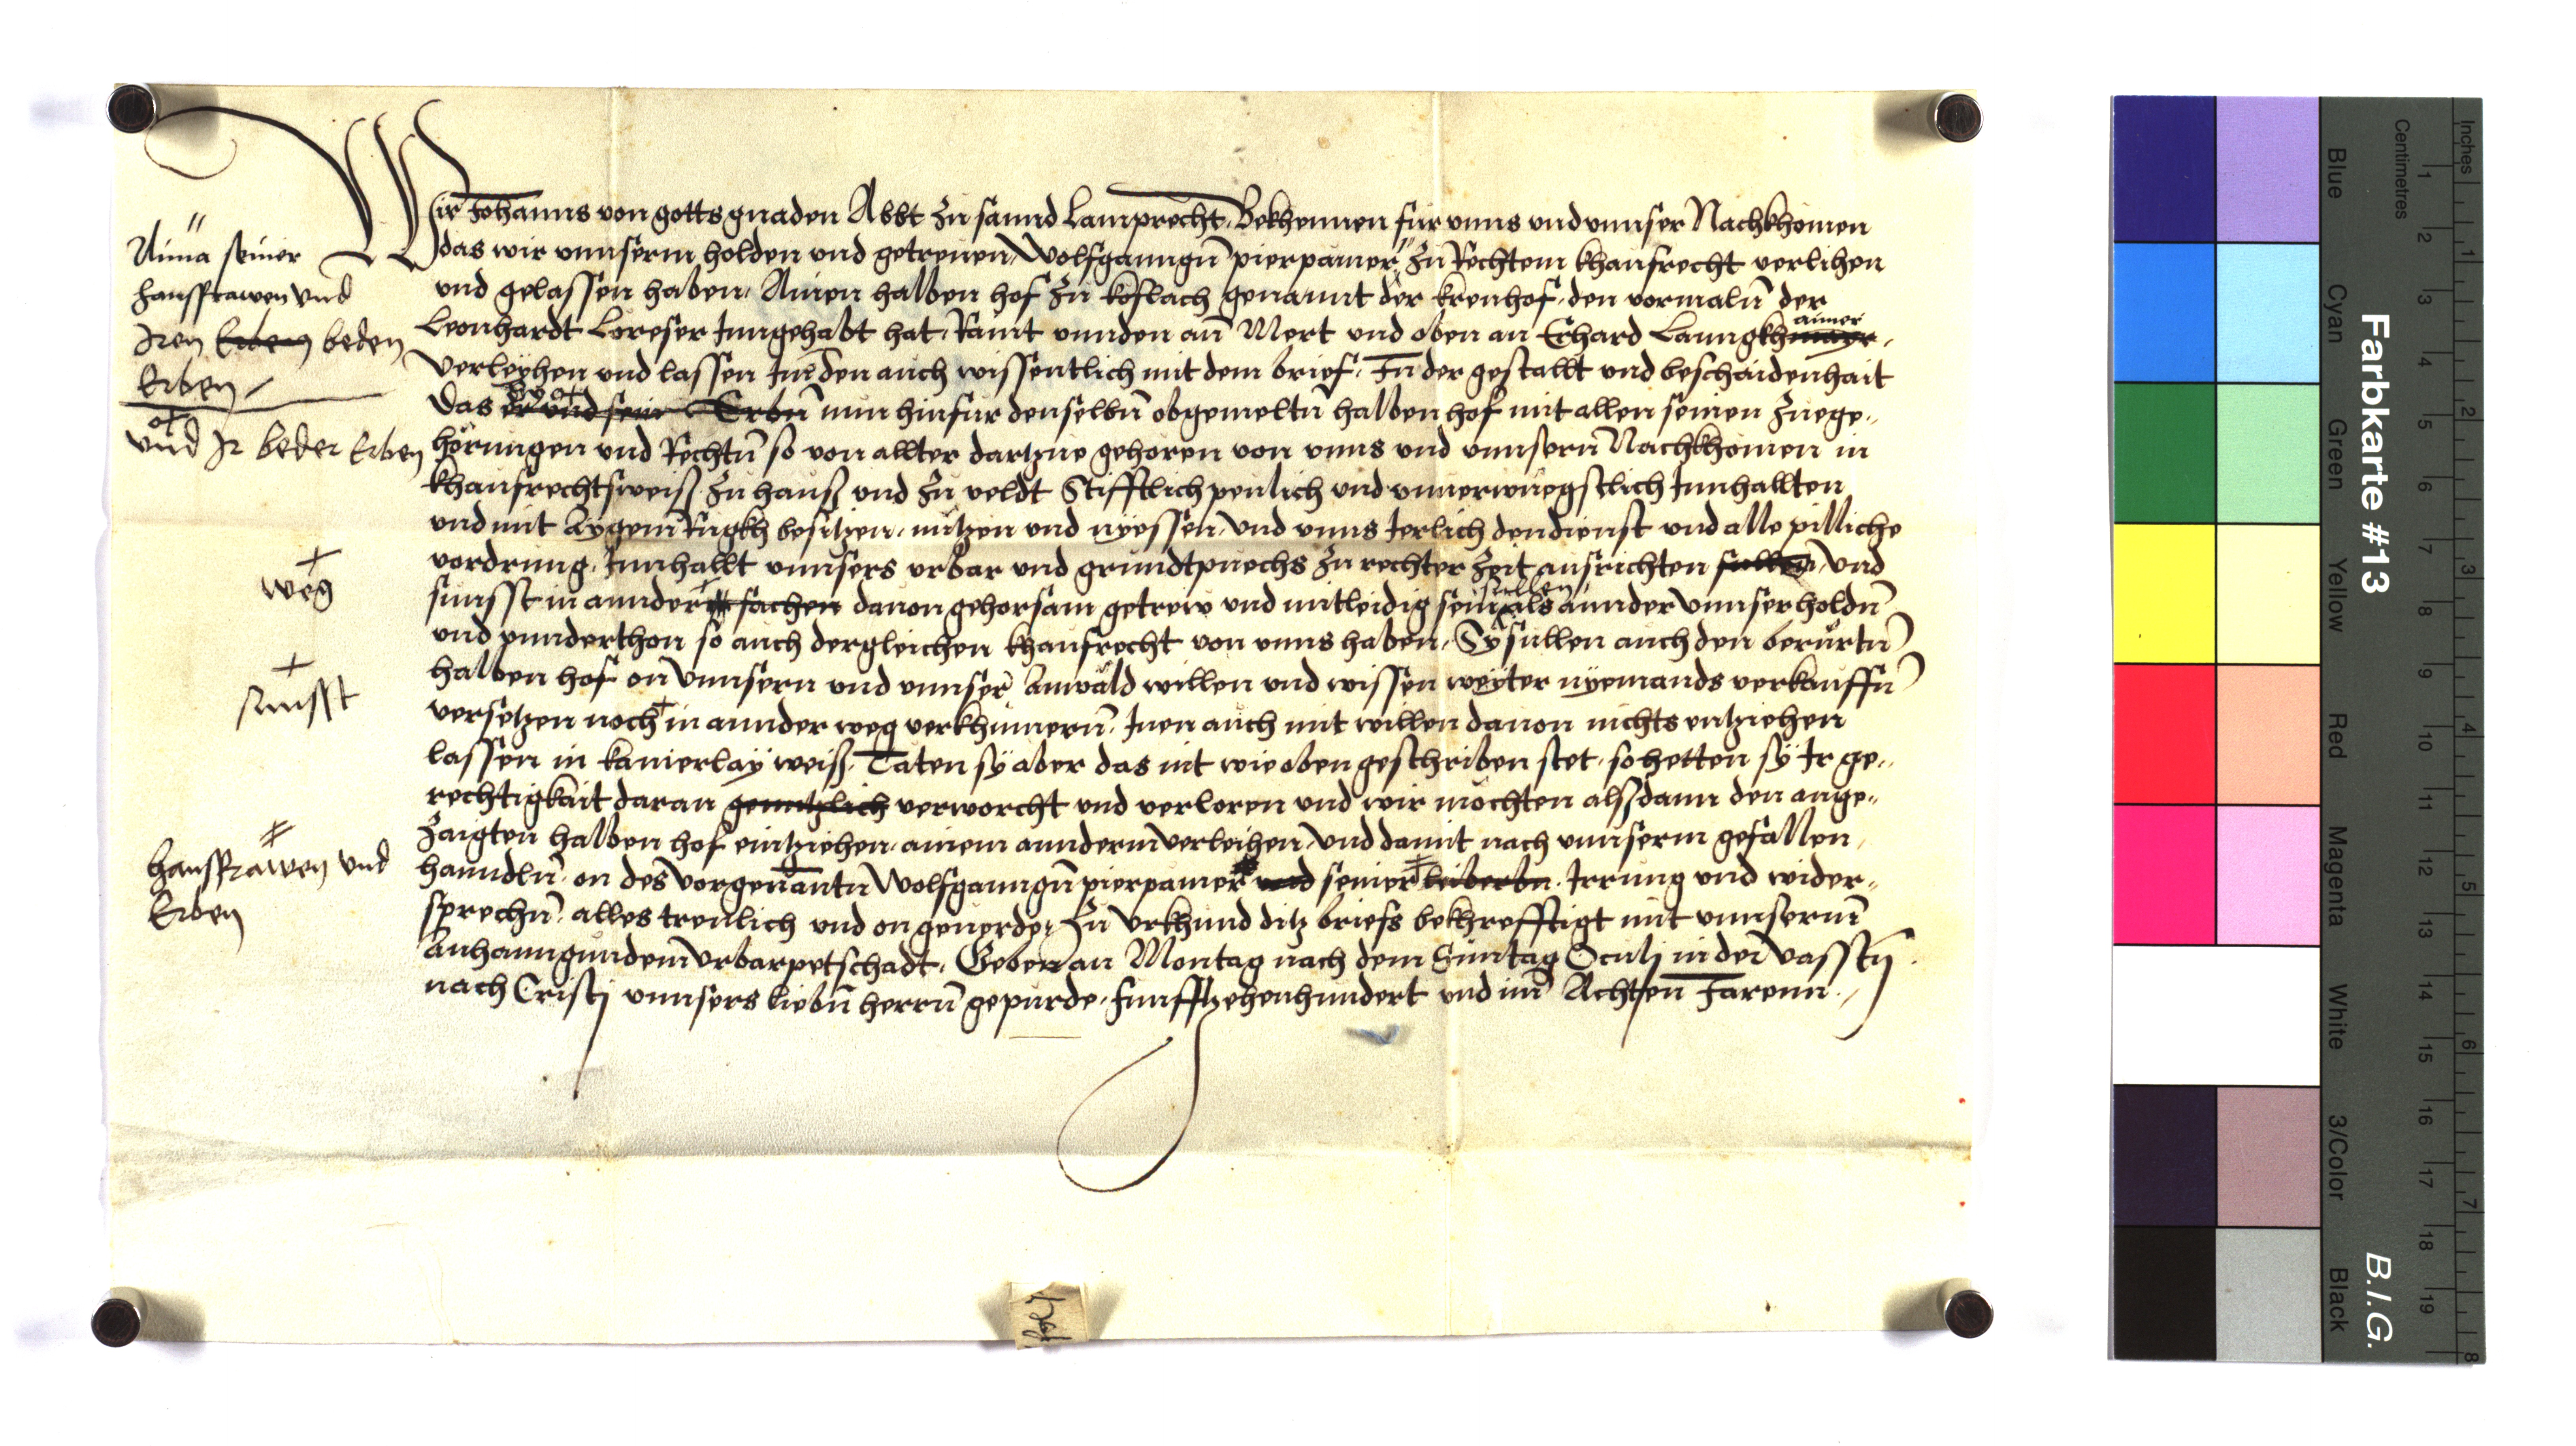 Wir Johanns von gotts gnaden Abbt zu sannd Lamprecht, Bekhennen fur vnns vnd vnnser Nachkhomen
das wir vnnserm holden vnd getrewen Wolfganngn pierpamer " zu Rechtem khaufrecht verlihen
vnd gelassen haben, Ainen halben hof zu koflach genannt der krenhof, den vormaln der
Leonhardt Loreser Inngehabt hat, Raint vnnden an Mert vnd oben an Erhard Lanngkhmayr aimer,
Verleyhen vnd lassen In den auch wissentlich mit dem brief, In der gestallt vnd beschaidenhait
Das er vnd sein Erbn nun hinfur denselbn obgemeltn halben hof mit allen seinen zuege-
hörungen vnd Rechtn so von allter dartzue gehoren von vnns vnd vnnsern Nachkhomen in
khaufrechtsweiss zu hauss vnd zu veldt Stifftlich peulich vnd vnuerwuegstlich Innhallten
vnd mit Aygem Rugkh besitzen, nutzen vnd nyessen, vnd vnns Jerlich den dienst vnd alle pilliche
vordrung, Innhallt vnnsers vrbar vnd grundtpuechs zu rechter Zeit ausrichten sullen, vnd
sunsst in annder + sachen dauon gehorsam getrew vnd mitleidig sein sullen als annder vnnser holdn
vnd vnnderthon so auch dergleichen khaufrecht von vnns haben, Sy sullen auch den berurtn
halben hof on Vnnsern vnd vnnser Anwäld willen vnd wissen weyter nyemands verkauffn
versetzen noch + in annder weg verkhumern, Inen auch mit willen dauon nichts entziehen
lassen in kainerlay weiss, Taten sy aber das nit wie oben geschriben stet, so hetten sy Ir ge-
rechtigkait daran genntzlich verworcht vnd verloren vnd wir mochten alssdann den ange-
zaigten halben hof eintziehen, ainem anndern verleihen, vnd damit nach vnnserm gefallen,
hanndln, on des vorgenantn Wolfganngn pierpamer vnd seiner leiberbn, Irrung vnd wider-
sprechn, alles trewlich vnd on geuerde, Zu Vrkhund ditz briefs bekhrefftigt mit vnnserm
Anhanngundem Vrbarpetschadt, Geben an Montag nach dem Suntag Oculj in der Vasstn
nach Cristj vnnsers liebn herrn gepurde, funfftzehenhundert vnd im Achten Jarenn.
"
Anna seiner
hausfrawen vnd
Iren Erben beden
Erben
vnd Ir beder Erben
+
weg
+
sunsst
hausfrawen vnd
Erben
Farbkarte #13
B.I.G.
Centimetres
Inches
Blue
Cyan
Green
Yellow
Red
Magenta
White
3/Color
Black
1 2 3 4 5 6 7 8 9 10 11 12 13 14 15 16 17 18 19
1 2 3 4 5 6 7 8